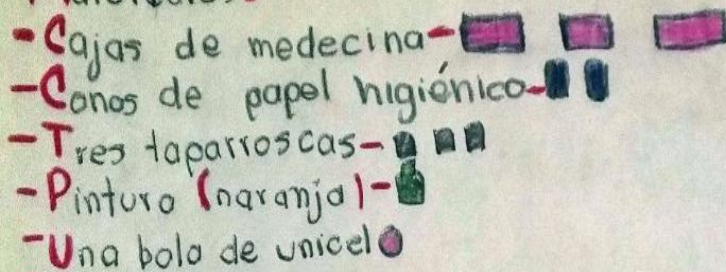 -Cajas de medecina-
-Conos de papel higiénico-
-Tres taparroscas-
-Pintura (naranja)-
-Una bola de unicel